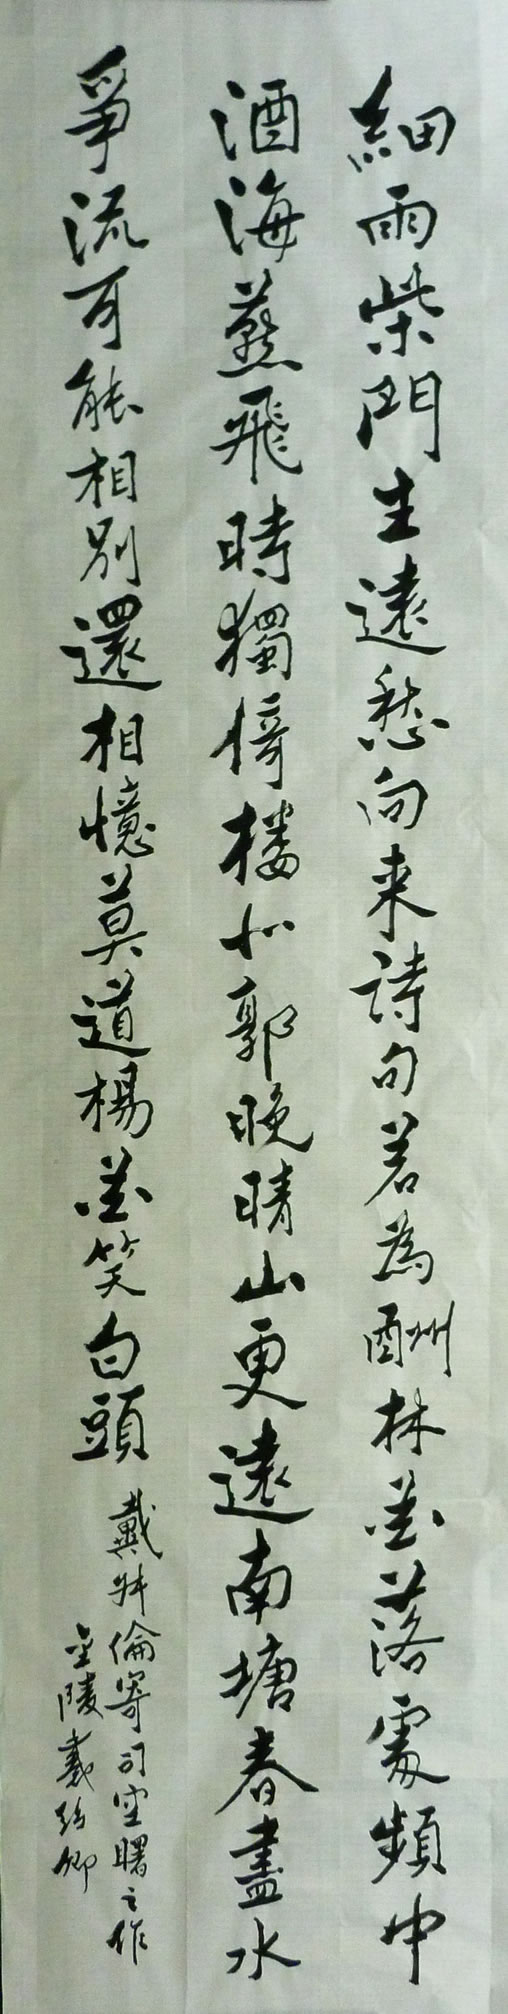 細雨柴門生遠愁向来詩句若為酬林花落處頻中
酒海燕飛時獨倚楼北郭晚晴山更遠南塘春盡水
爭流可能相別還相憶莫道楊花笑白頭
戴叔倫寄司空曙之作
金陵戴